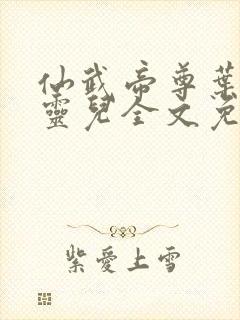 仙武帝尊葉
靈兒全文免
紫愛上雪